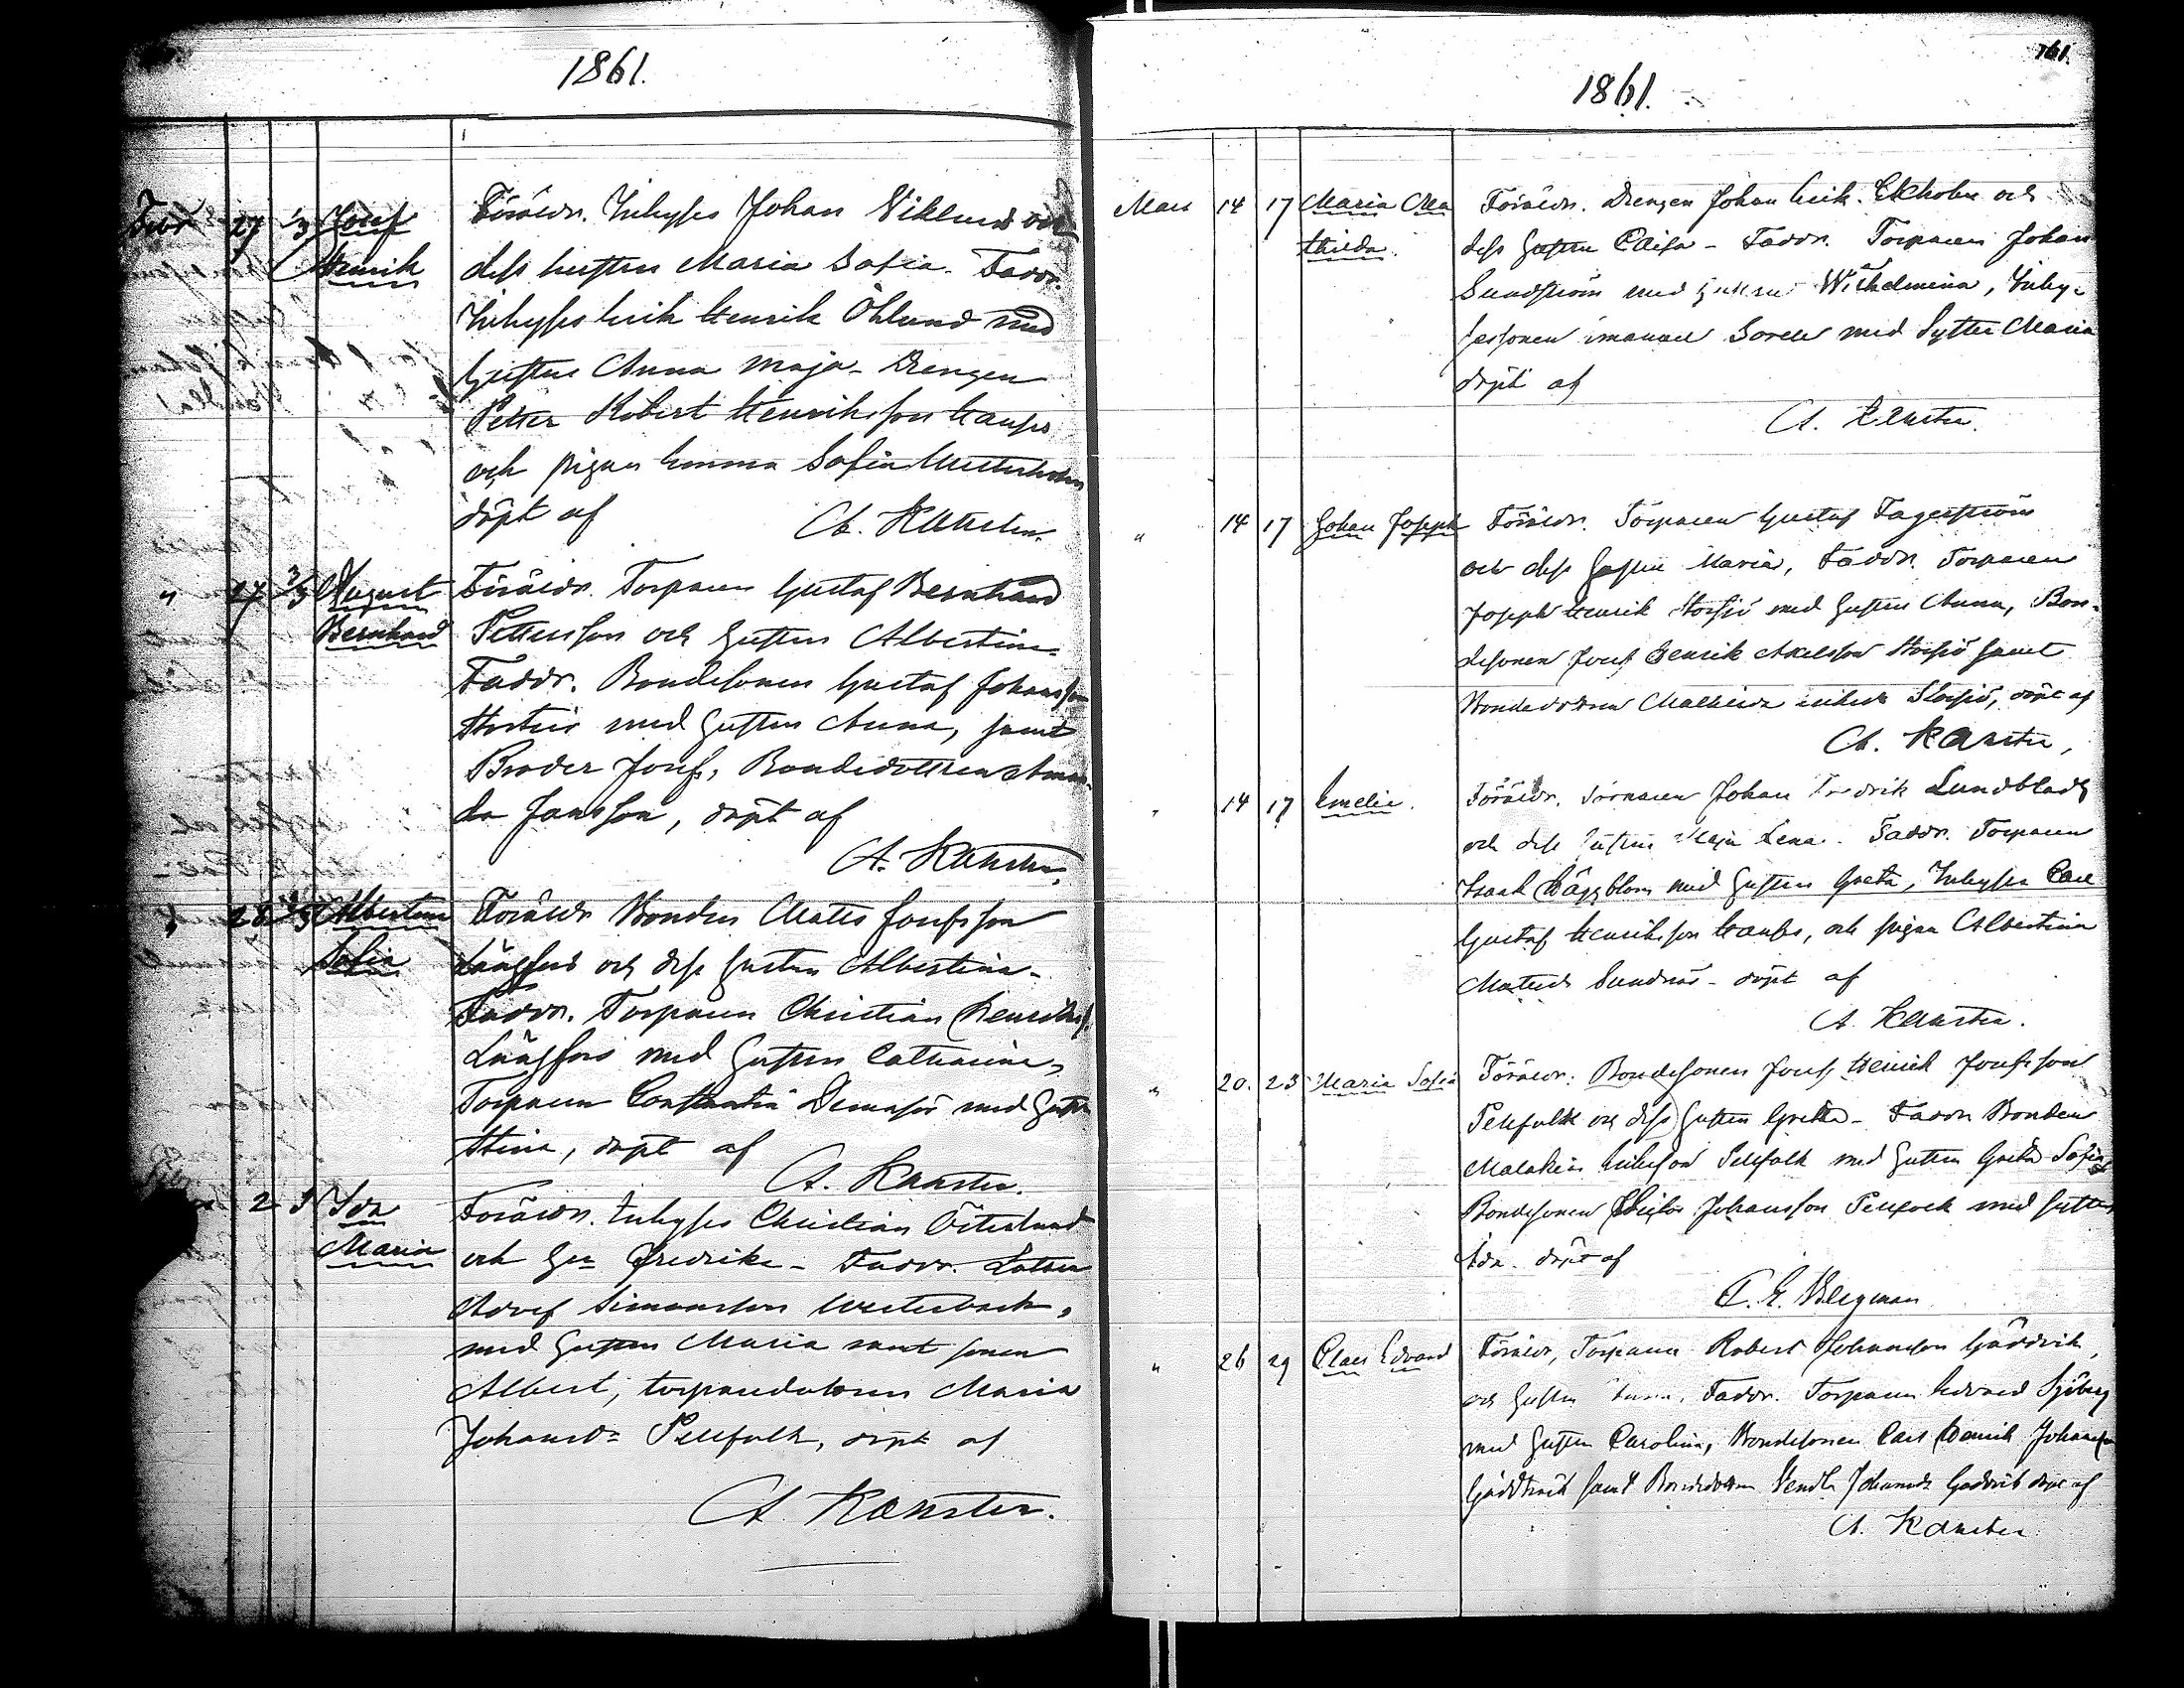 1861.
Febr 27 1/3 Josef Föräldr. Inhyses Johan Viklund och
Henrik dess hustru Maria Sofia. Faddr.
Inhyses Erik Henrik Öhlund med
hustru Anna Maja - Drengen
Petter Robert Henriksson
och pigan Emma Sofia
döpt af A. Karsten.
" 27 3/3 August Föräldr. Torparen Gustaf Bernhard
Bernhard Pettersson och hustru Albertina
Faddr. Bondesonen Gustaf Johansson
med hustru Anna, samt
Broder Josef, Bondedottren Aman-
da Jansson, döpt af
A. Karsten.
" 28 /3 Albertina Föräldr. Bonden Mats Josefsson
Sofia Långfors och dess hustru Albertina -
Faddr. Torparen Christian
Långfors med hustru Catharina,
Torparen Constantin med hustru
Stina, döpt af
A. Karsten.
2 Ida Föräldr. Inhyses Christian Österlund
Maria och Hu Fredrika - Faddr.
Adolf Simonsson Westerback,
med hustru Maria samt sonen
Albert, torparedottren Maria
Johansdr Pellfolk, döpt af
A. Karsten.
161.
1861.
Mars 14 17 Maria Ma Föräldr. Drengen Johan Erik Ekholm och
thilda. dess hustru Caisa - Faddr. Torparen Johan
Sundström med hustru Wilhelmina, Inhy-
sessonen Emanuel med Syster Maria
döpt af
A. Karsten.
" 14 17 Johan Joseph Föräldr. Torparen Gustaf Fagerström
och dess hustru Maria, Faddr. Torparen
Joseph Henrik Storsjö med hustru Anna, Bon-
desonen Josef Henrik Axelsson Storsjö samt
Bondedottren Storsjö, döpt af
A. Karsten,
" 14 17 Emelie. Föräldr. Torparen Johan Fredrik Lundblad
och dess hustru Maja Lena. Faddr. Torparen
Isaak Häggblom med hustru Greta, Inhyses Carl
Gustaf Henriksson, och pigan Albertina
Matsdr Sundnäs - döpt af
A. Karsten.
" 20. 23 Maria Sofia Föräldr. Bondesonen Josef Henrik Josefsson
Pellfolk och dess hustru Greta - Faddr Bonden
Malakias Eriksson Pellfolk med hustru Greta Sofia
Bondesonen Johansson Pellfolk med hustru
Ida. döpt af
Bergman
" 26 29 Claes Edvard Föräldr, Torparen Robert Johansson Gäddvik,
och hustru Anna. Faddr. Torparen Edvard Sjöberg
med hustru Carolina, Bondesonen Carl Henrik Johansson
samt Bondedottren Vendla Johansdr döpt af
A. Karsten.